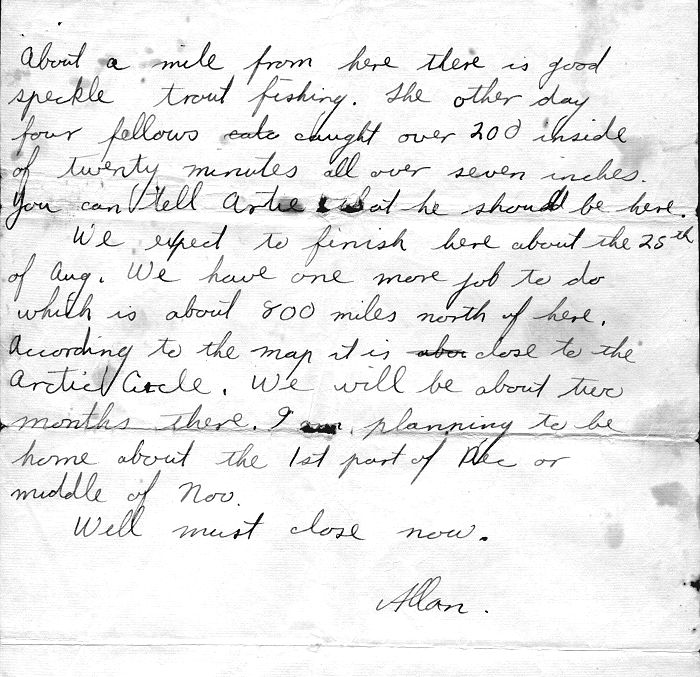 About a mile from here there is good
speckle trout fishing. The other day
four fellows caught over 200 inside
of twenty minutes all over seven inches.
You can tell Artie that he should be here.
We expect to finish here about the 25th
of Aug. We have one more job to do
which is about 800 miles north of here.
According to the map it is close to the
Arctic Circle. We will be about two
months there. I am planning to be
home about the 1st part of Dec or
middle of Nov.
Well must close now.
Allan.